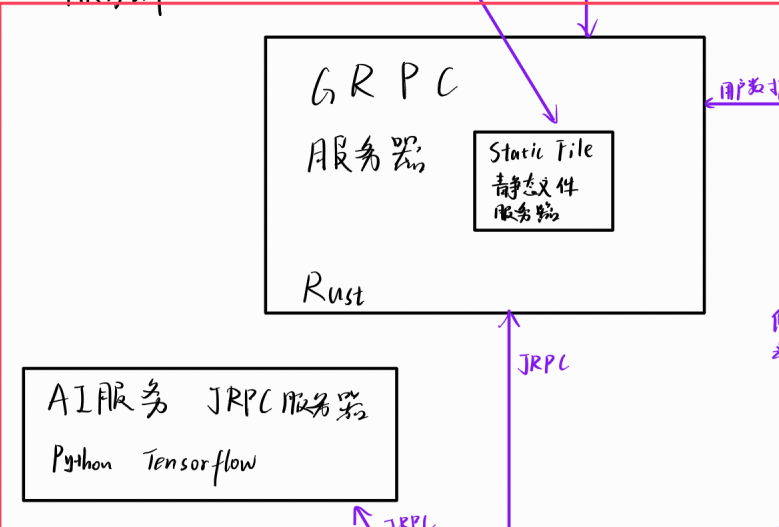 GRPC
用户数
服务器
Static File
静态文件
服务器
Rust
JRPC
AI服务 JRPC服务器
Python Tensorflow
JRPC